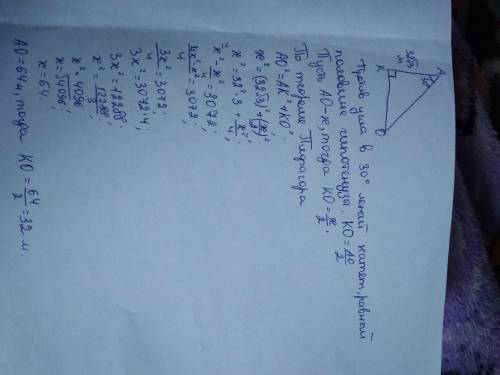 32√3 м
А
К
30°
О
Против угла в 30° лежит катет, равный
половине гипотенузы. КО = АО/2
Пусть АО - х, тогда КО = х/2.
По теореме Пифагора
АО² = АК² + КО²
х² = (32√3)² + (х/2)²;
х² = 32² · 3 + х²/4;
х² - х²/4 = 3072;
4х² - х²/4 = 3072;
3х²/4 = 3072;
3х² = 3072 · 4;
3х² = 12288;
х² = 12288/3;
х² = 4096
х = √4096;
х = 64;
АО = 64 м, тогда КО = 64/2 = 32 м.